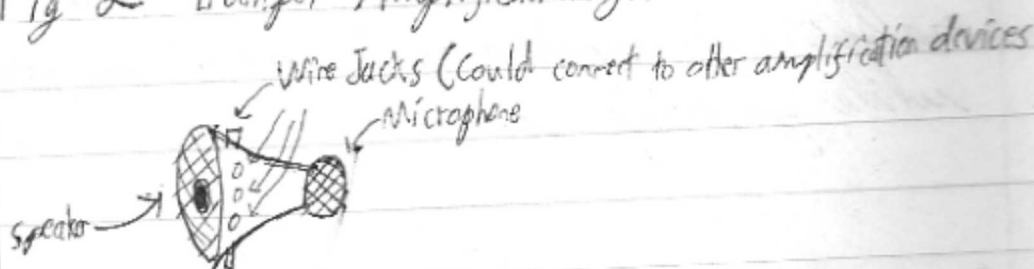 Fig 2
Wire Jacks (Could connect to other amplification devices
Microphone
Speaker